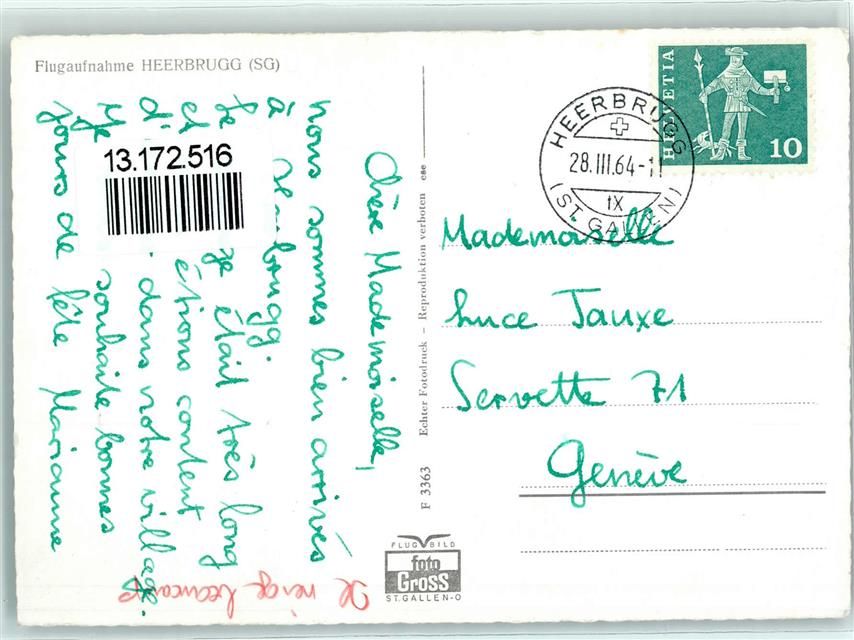 Flugaufnahme HEERBRUGG (SG)
Chère Mademoiselle,
nous sommes bien arrivés
à brugg.
ge était très long
et étions content
d' dans notre village.
souhaite bonnes
jours de fête Marianne
Il neige beaucoup
13.172.516
F 3363 Echter Fotodruck – Reproduktion verboten
FLUG BILD
foto
Gross
ST.GALLEN-O
HELVETIA
10
HEERBRUGG
28.III.64-11
IX
(ST. GALLEN)
Mademoiselle
Luce Tauxe
Servette 71
Genève